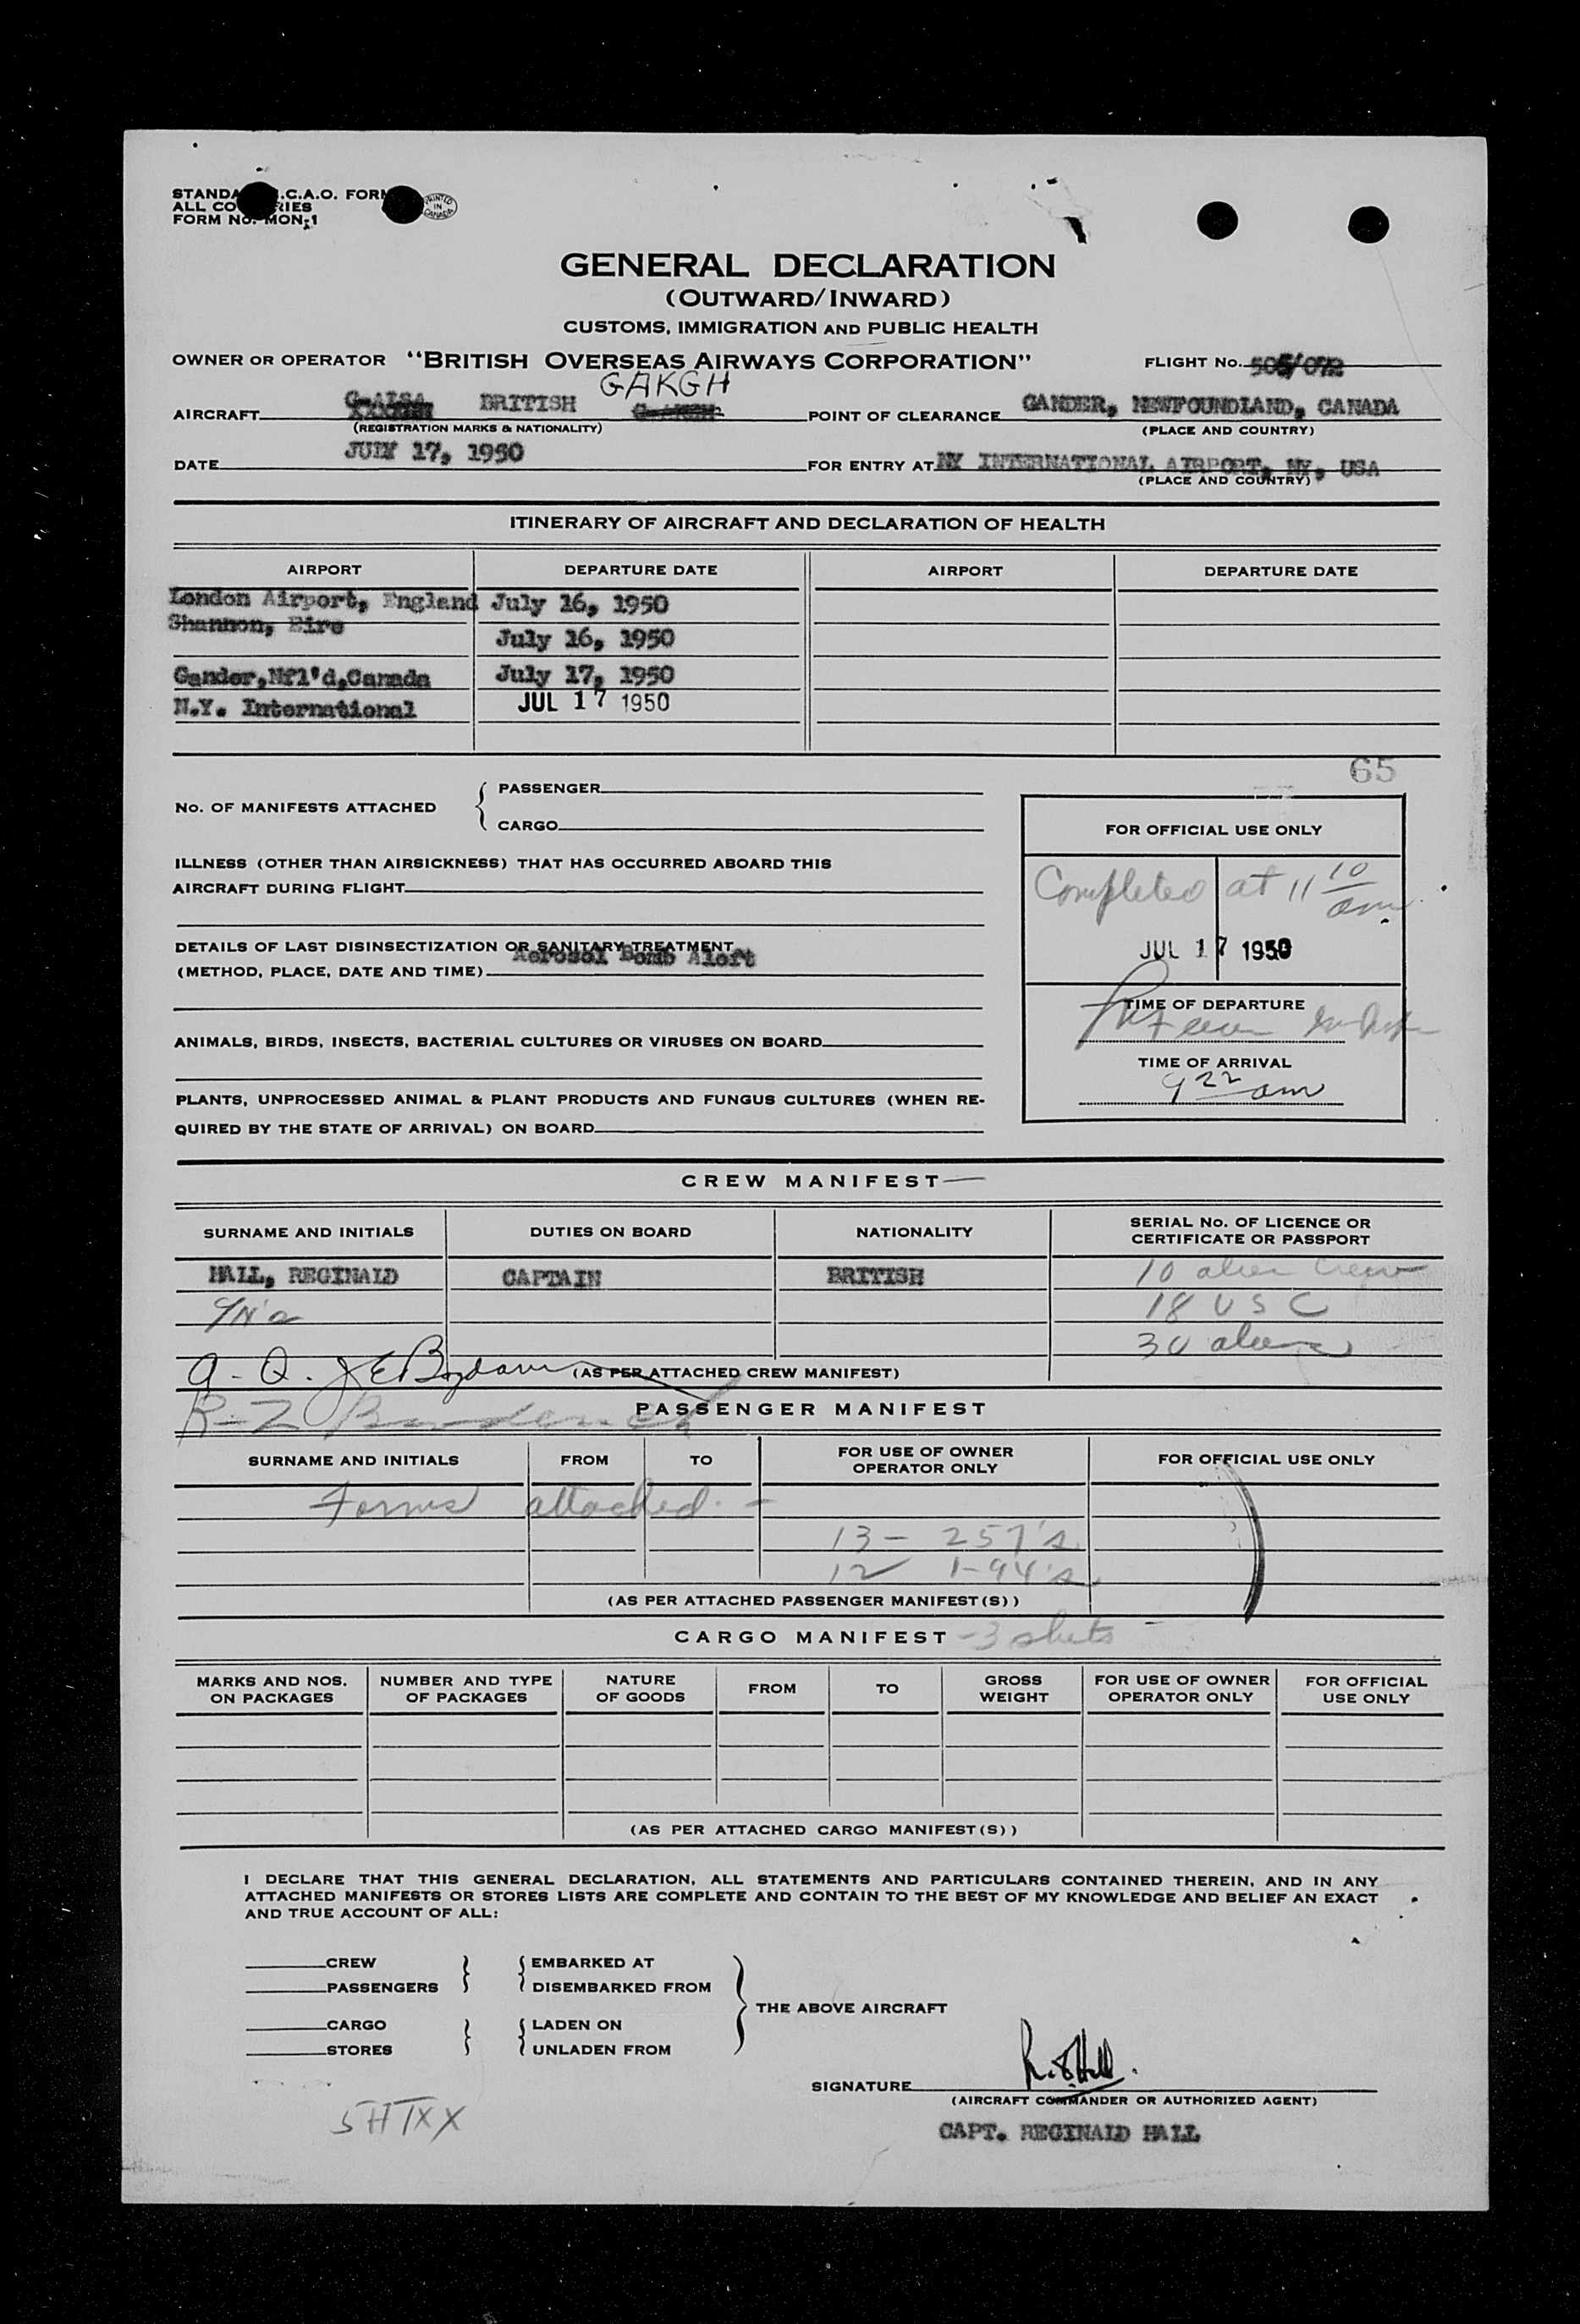 STANDA .C.A.O. FORM
ALL CO RIES
FORM NO. MON-1
PRINTED IN CANADA
GENERAL DECLARATION
(OUTWARD/INWARD)
CUSTOMS, IMMIGRATION AND PUBLIC HEALTH
OWNER OR OPERATOR "BRITISH OVERSEAS AIRWAYS CORPORATION" FLIGHT No.
GAKGH
AIRCRAFT G-AISA BRITISH POINT OF CLEARANCE GANDER, NEWFOUNDLAND, CANADA
(REGISTRATION MARKS & NATIONALITY) (PLACE AND COUNTRY)
DATE JULY 17, 1950 FOR ENTRY AT NY INTERNATIONAL AIRPORT, NY, USA
(PLACE AND COUNTRY)
ITINERARY OF AIRCRAFT AND DECLARATION OF HEALTH
AIRPORT DEPARTURE DATE AIRPORT DEPARTURE DATE
London Airport, England July 16, 1950
Shannon, Eire July 16, 1950
Gander,Nfl'd,Canada July 17, 1950
N.Y. International JUL 17 1950
65
No. OF MANIFESTS ATTACHED PASSENGER
CARGO
FOR OFFICIAL USE ONLY
Completed at 11 10 am
JUL 17 1950
ILLNESS (OTHER THAN AIRSICKNESS) THAT HAS OCCURRED ABOARD THIS
AIRCRAFT DURING FLIGHT
DETAILS OF LAST DISINSECTIZATION OR SANITARY TREATMENT
(METHOD, PLACE, DATE AND TIME) Aerosol Bomb Aloft
TIME OF DEPARTURE
ANIMALS, BIRDS, INSECTS, BACTERIAL CULTURES OR VIRUSES ON BOARD
TIME OF ARRIVAL
9 22 am
PLANTS, UNPROCESSED ANIMAL & PLANT PRODUCTS AND FUNGUS CULTURES (WHEN RE-
QUIRED BY THE STATE OF ARRIVAL) ON BOARD
CREW MANIFEST
SURNAME AND INITIALS DUTIES ON BOARD NATIONALITY SERIAL No. OF LICENCE OR CERTIFICATE OR PASSPORT
HALL, REGINALD CAPTAIN BRITISH 10 alien Crew
18 USC
30 aliens
(AS PER ATTACHED CREW MANIFEST)
PASSENGER MANIFEST
SURNAME AND INITIALS FROM TO FOR USE OF OWNER OPERATOR ONLY FOR OFFICIAL USE ONLY
Forms attached. -
13 - 257's
12 I-94's
(AS PER ATTACHED PASSENGER MANIFEST(S))
CARGO MANIFEST - 3 shets -
MARKS AND NOS. ON PACKAGES NUMBER AND TYPE OF PACKAGES NATURE OF GOODS FROM TO GROSS WEIGHT FOR USE OF OWNER OPERATOR ONLY FOR OFFICIAL USE ONLY
(AS PER ATTACHED CARGO MANIFEST(S))
I DECLARE THAT THIS GENERAL DECLARATION, ALL STATEMENTS AND PARTICULARS CONTAINED THEREIN, AND IN ANY
ATTACHED MANIFESTS OR STORES LISTS ARE COMPLETE AND CONTAIN TO THE BEST OF MY KNOWLEDGE AND BELIEF AN EXACT
AND TRUE ACCOUNT OF ALL:
CREW EMBARKED AT
PASSENGERS DISEMBARKED FROM
THE ABOVE AIRCRAFT
CARGO LADEN ON
STORES UNLADEN FROM
SIGNATURE
(AIRCRAFT COMMANDER OR AUTHORIZED AGENT)
5HTXX
CAPT. REGINALD HALL